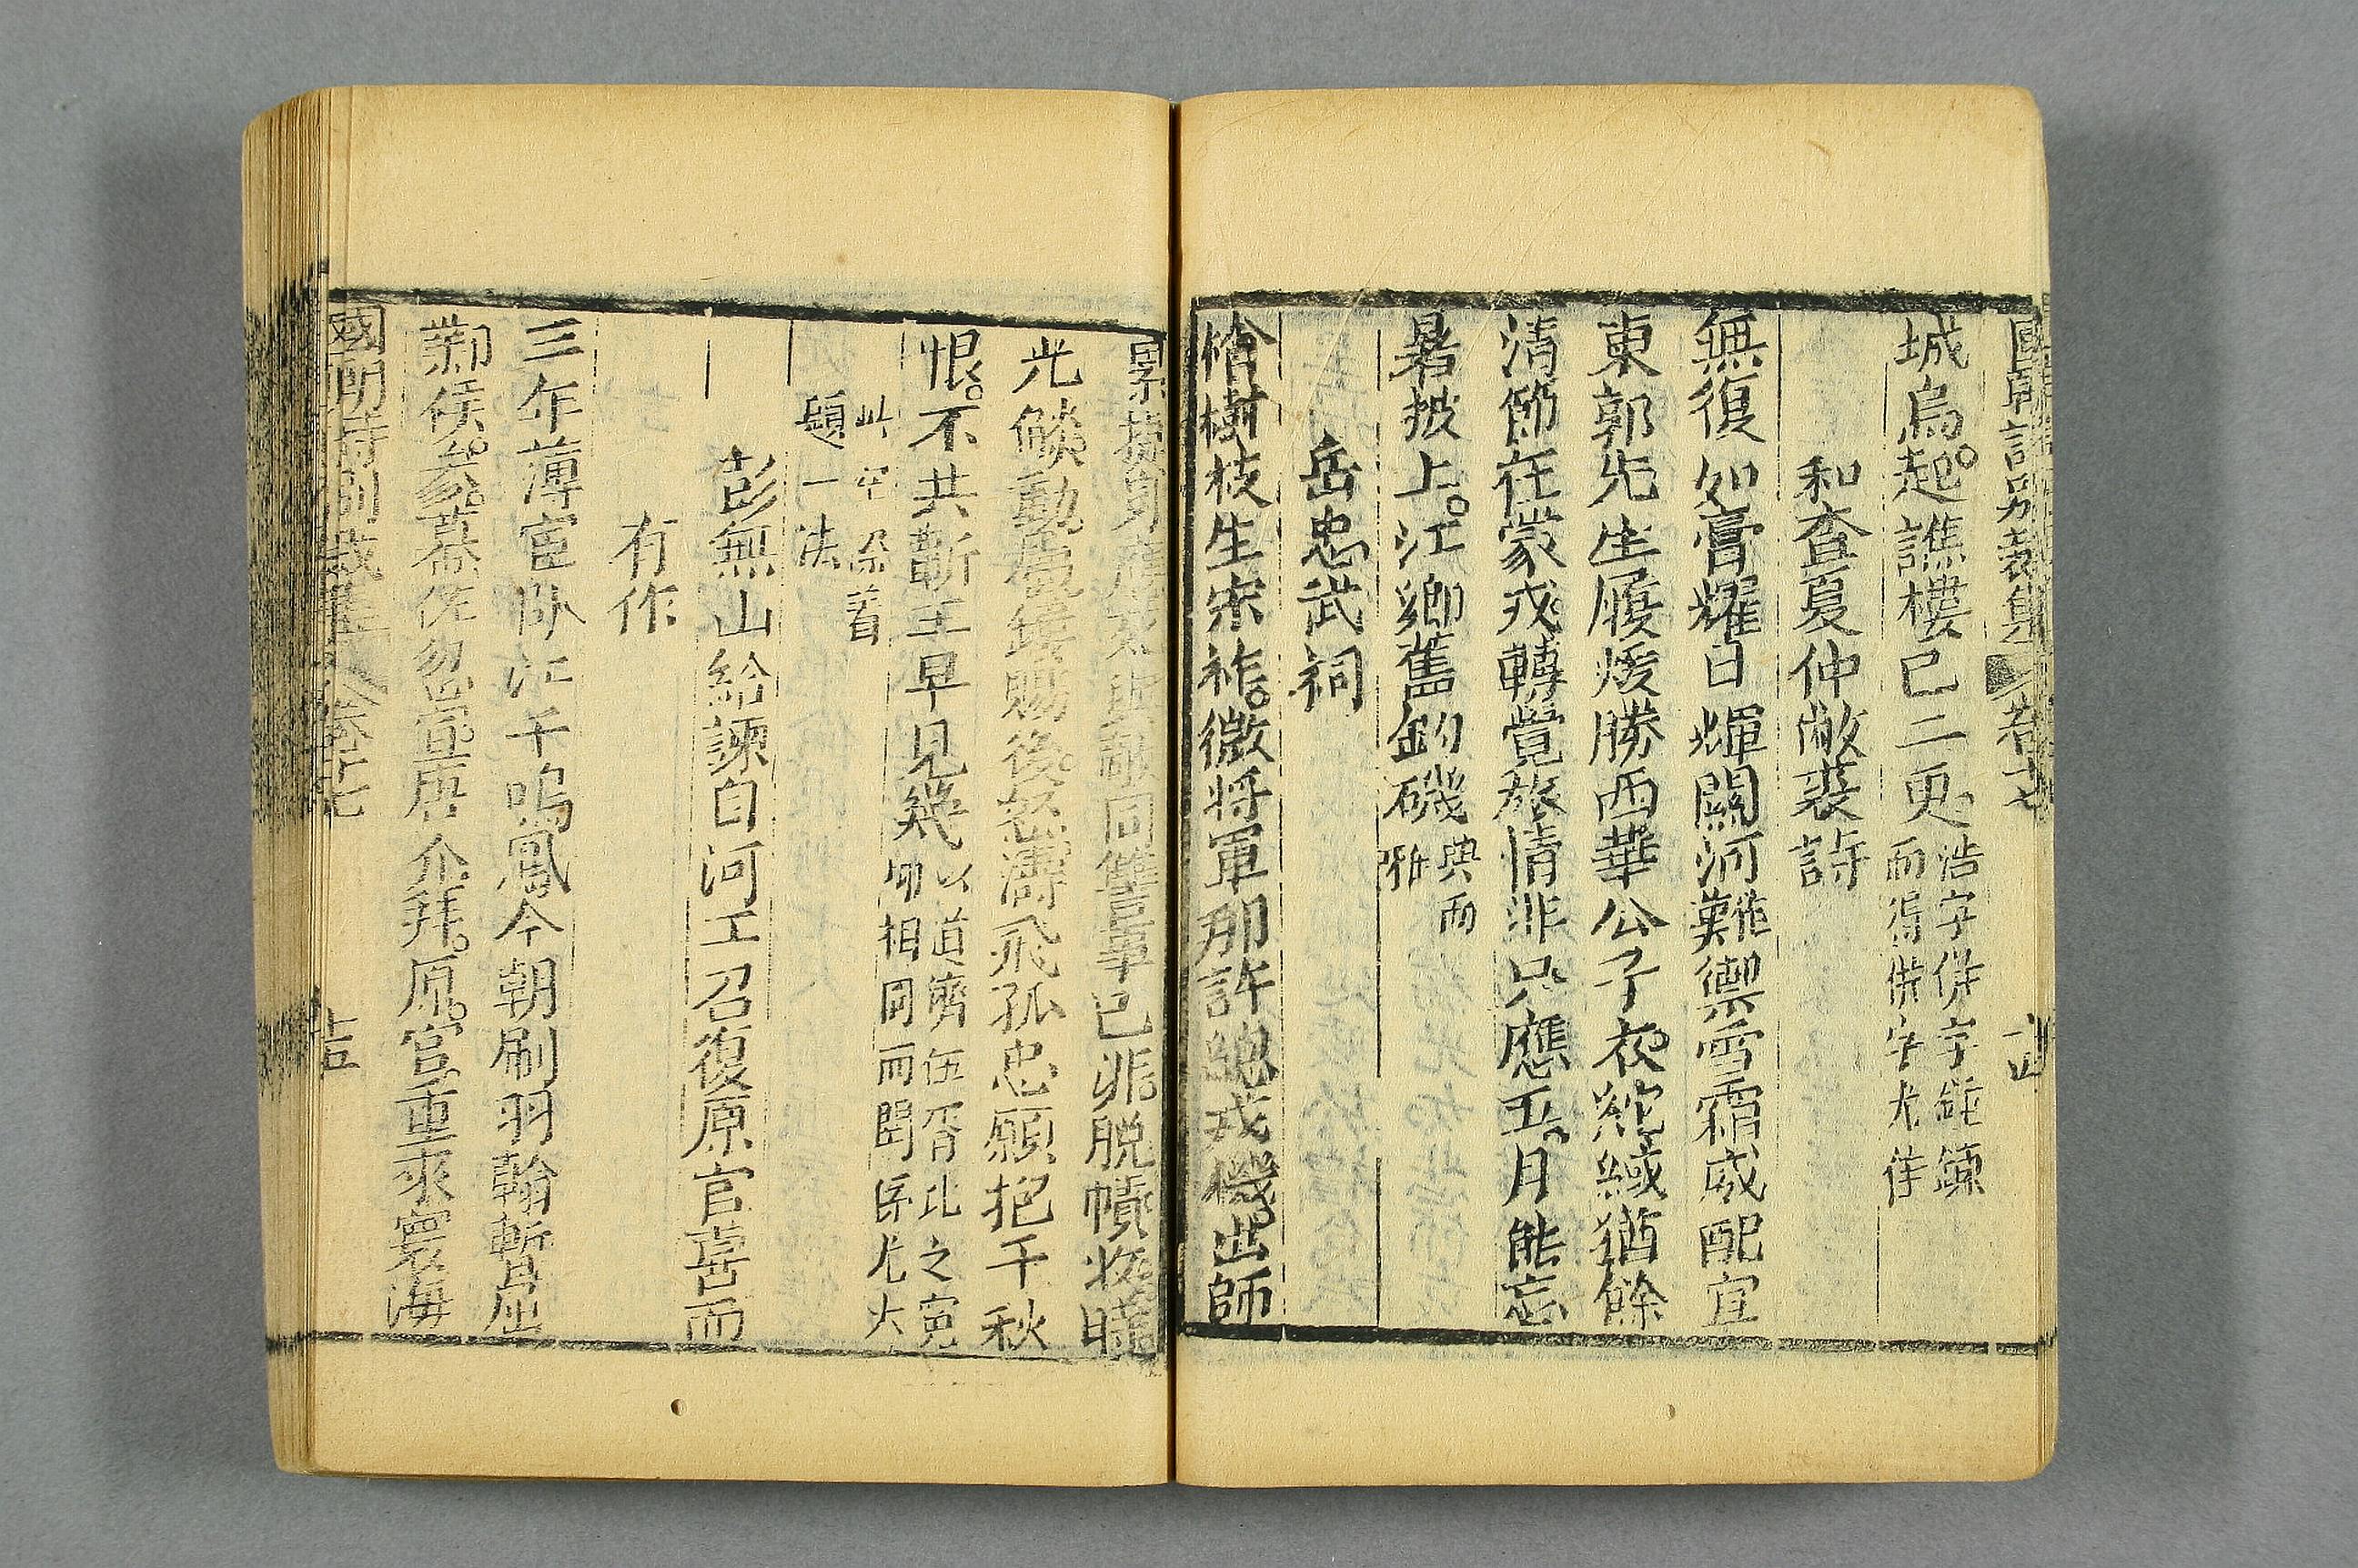 國朝詩別裁集 卷十七
城烏起譙樓已二更
浩字併字錘鍊
而得併字尤佳
和查夏仲敝裘詩
無復如膏耀日輝關河難禦雪霜威配宜
東郭先生履煖勝西華公子衣紽緎猶餘
清節在蒙戎轉覺旅情非只應五月能忘
暑披上江鄉舊釣磯
典而
雅
岳忠武祠
檜樹枝生宋祚微將軍那許總戎機出師
同讐事已非脫幘
光燄動屬鏤賜後怒濤飛孤忠願抱千秋
恨不共蘄王早見幾
以道濟伍胥比之寃
師相岡而閏 尤大
此罕深着
題一法
彭無山給諫自河工召復原官喜而
有作
三年薄宦臥江干鳴鳳今朝刷羽翰暫屈
鄴侯參幕佐勿宣唐介拜原官重來寰海
國朝詩別裁集 卷十七